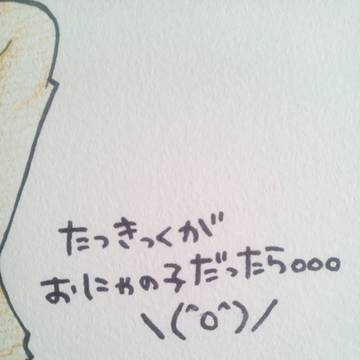 たっきっくが
おにゃの子だったら。。。
\(^o^)/